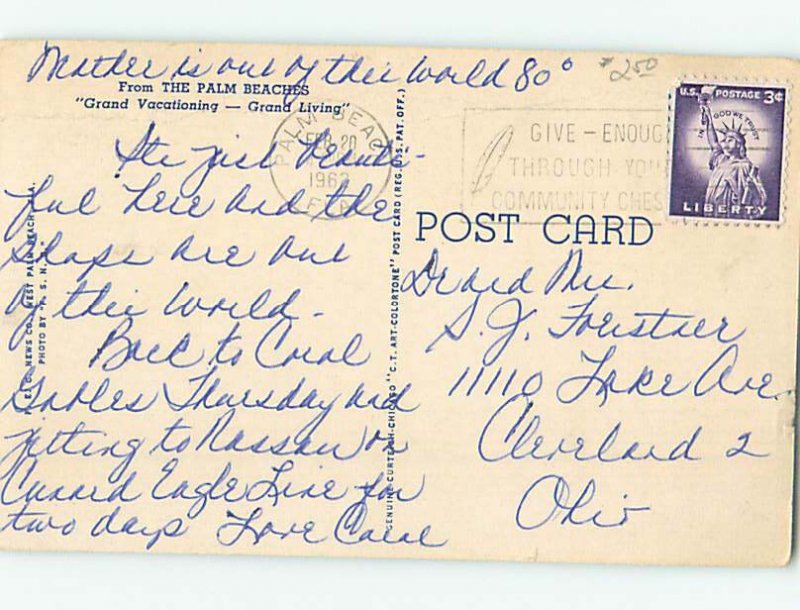 Weather is out of this world 80°
$2.50
From THE PALM BEACHES
"Grand Vacationing — Grand Living"
PALM BEACH
FEB 20
1962
FLA
GIVE - ENOUG
THROUGH YOU
COMMUNITY CHES
U.S. POSTAGE 3¢
IN GOD WE TRUST
LIBERTY
Its just beauti-
ful here and the
shops are out
of this world.
Back to Coral
Gables Thursday and
jetting to Nassau on
Cunard Eagle Line for
two days Love Carol
NEWS CO., WEST PALM BEACH
PHOTO BY
GENUINE CURTEICH-CHICAGO "C.T. ART-COLORTONE" POST CARD (REG. U.S. PAT. OFF.)
POST CARD
S. J. Foerstner
11110 Lake Ave.
Cleveland 2
Ohio